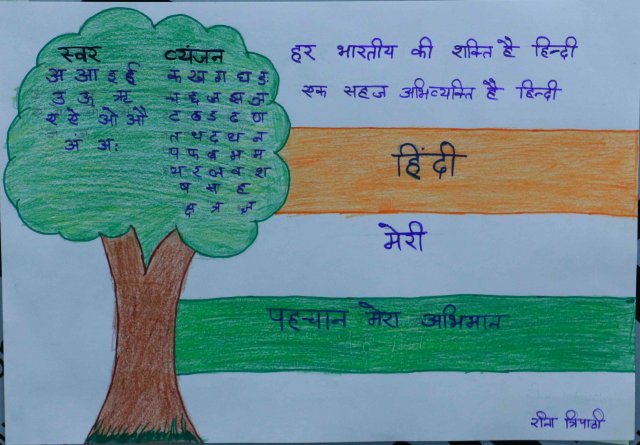 स्वर
अ आ इ ई
उ ऊ ऋ
ए ऐ ओ औ
अं अः
व्यंजन
क ख ग घ ङ
च छ ज झ ञ
ट ठ ड ढ ण
त थ द ध न
प फ ब भ म
य र ल व श
ष स ह
क्ष त्र ज्ञ
हर भारतीय की शक्ति है हिन्दी
एक सहज अभिव्यक्ति है हिन्दी
हिंदी
मेरी
पहचान मेरा अभिमान
रीना त्रिपाठी